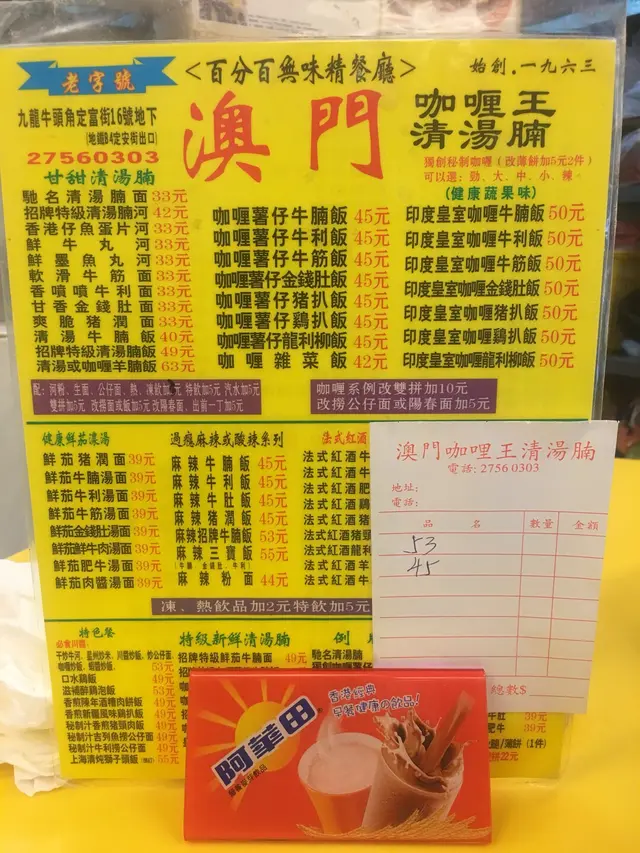 老字號
<百分百無味精餐廳>
始創.一九六三
九龍牛頭角定富街16號地下
(地鐵B4定安街出口)
27560303
澳門
咖喱王
清湯腩
獨創秘制咖喱(改薄餅加5元2件)
可以選:勁、大、中、小、辣
甘甜清湯腩
馳名清湯腩面33元
招牌特級清湯腩河42元
香港仔魚蛋片河33元
鮮牛丸河33元
鮮墨魚丸河33元
軟滑牛筋面33元
香噴噴牛利面33元
甘香金錢肚面33元
爽脆豬潤面33元
清湯牛腩飯40元
招牌特級清湯腩飯49元
清湯或咖喱羊腩飯63元
咖喱薯仔牛腩飯45元
咖喱薯仔牛利飯45元
咖喱薯仔牛筋飯45元
咖喱薯仔金錢肚飯45元
咖喱薯仔豬扒飯45元
咖喱薯仔鷄扒飯45元
咖喱薯仔龍利柳飯45元
咖喱雜菜飯42元
(健康蔬果味)
印度皇室咖喱牛腩飯50元
印度皇室咖喱牛利飯50元
印度皇室咖喱牛筋飯50元
印度皇室咖喱金錢肚飯50元
印度皇室咖喱豬扒飯50元
印度皇室咖喱鷄扒飯50元
印度皇室咖喱龍利柳飯50元
配:河粉、生面、公仔面、熱、凍飲加2元 特飲加5元 汽水加5元
雙拼加5元 改撈面或飯加5元 改陽春面、出前一丁加5元
咖喱系例改雙拼加10元
改撈公仔面或陽春面加5元
健康鮮茄濃湯
鮮茄豬潤面39元
鮮茄牛腩面39元
鮮茄牛利面39元
鮮茄牛筋面39元
鮮茄金錢肚面39元
鮮茄鮮牛肉面39元
鮮茄肥牛面39元
鮮茄肉醬面39元
過癮麻辣或酸辣系列
麻辣牛腩飯45元
麻辣牛利飯45元
麻辣牛肚飯45元
麻辣豬潤飯45元
麻辣招牌牛腩飯53元
麻辣三寶飯55元
(牛腩 金錢肚、牛利)
麻辣粉面44元
法式紅酒
法式紅酒牛
法式紅酒牛
法式紅酒肥
法式紅酒鷄
法式紅酒豬
法式紅酒豬頸
法式紅酒龍利
法式紅酒羊
法式紅酒牛
凍、熱飲品加2元特飲加5元
特色餐
必食川麵:
干炒牛河、星州炒米、川醬炒飯、炒公仔面、
咖喱炒飯、蝦醬炒飯、53元
口水鷄飯49元
滋補醉鷄泡飯53元
香煎陳年酒糟肉餅飯49元
香煎新疆風味鷄扒飯49元
秘制汁香煎豬頸肉飯49元
秘制汁吉列魚揚公仔面49元
秘制汁牛利揚公仔面49元
上海清炖獅子頭飯55元
特級新鮮清湯腩
招牌特級鮮茄牛腩面49元
例
馳名清湯腩
獨創咖喱薯仔
澳門咖喱王清湯腩
電話:27560303
地址:
電話:
品名 數量 金額
53
45
總數$
肚41元
牛39元
/薄餅(1件)
22元
香港經典
早餐健康の飲品!
阿華田
營養麥芽飲品